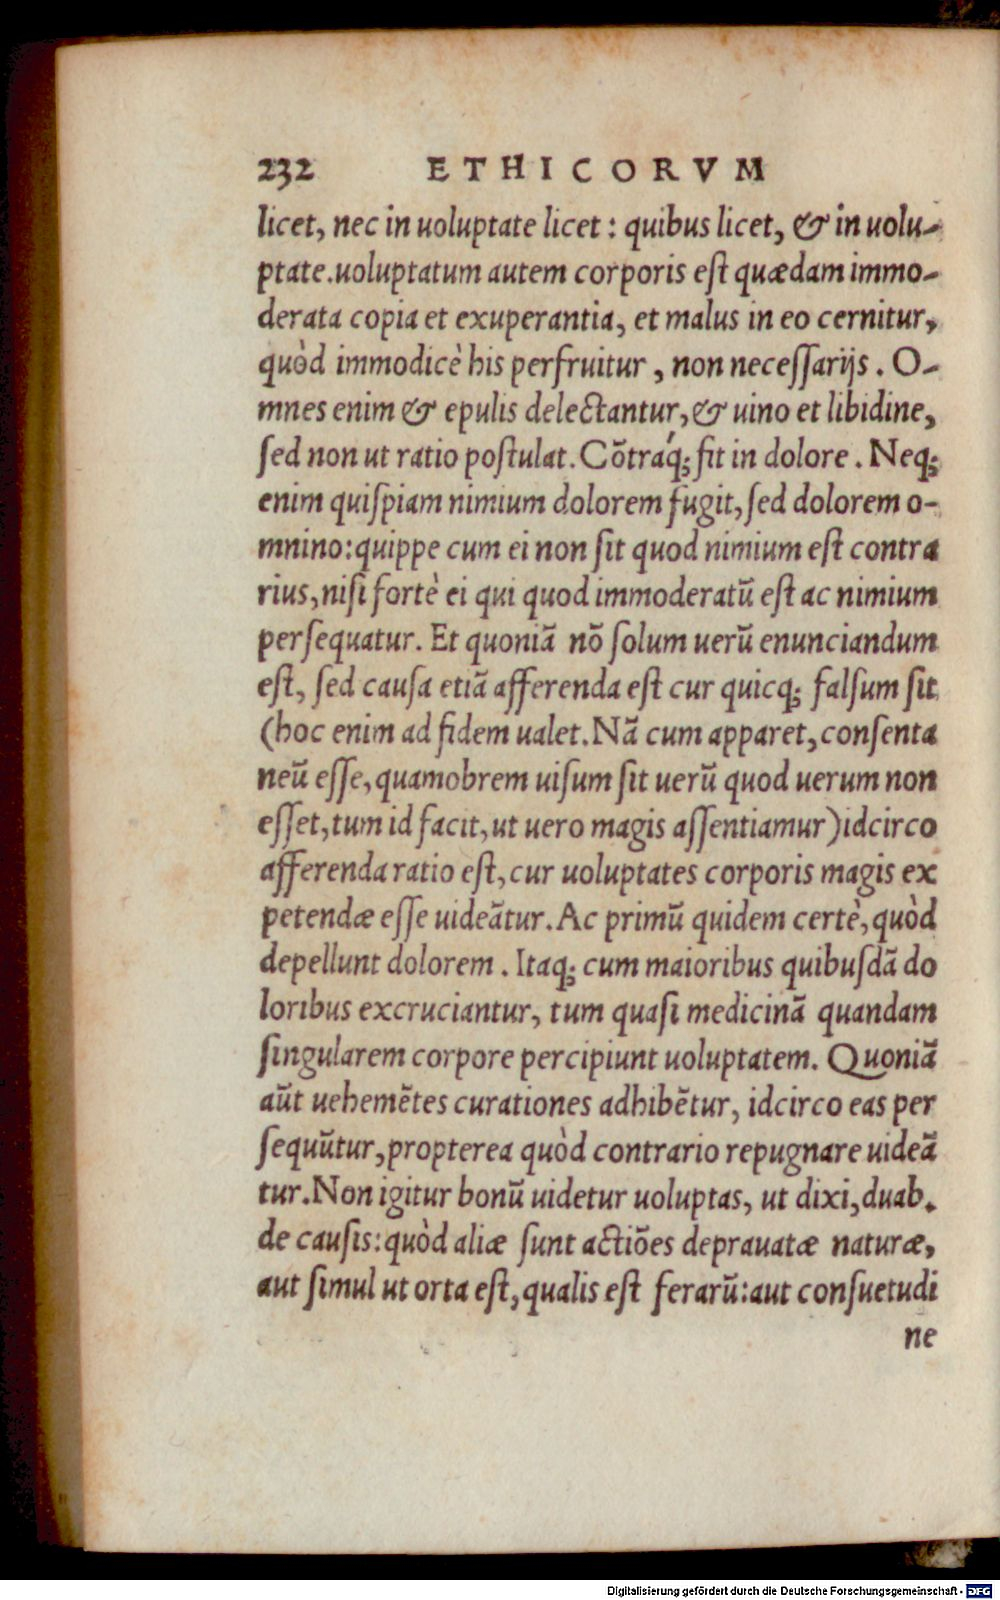 232 ETHICORVM
licet, nec in uoluptate licet: quibus licet, & in uolu-
ptate. uoluptatum autem corporis est quædam immo-
derata copia et exuperantia, et malus in eo cernitur,
quòd immodicè his perfruitur, non necessarijs. O-
mnes enim & epulis delectantur, & uino et libidine,
sed non ut ratio postulat. Cõtráq; fit in dolore. Neq;
enim quispiam nimium dolorem fugit, sed dolorem o-
mnino: quippe cum ei non sit quod nimium est contra
rius, nisi fortè ei qui quod immoderatũ est ac nimium
persequatur. Et quoniã nõ solum uerũ enunciandum
est, sed causa etiã afferenda est cur quicq; falsum sit
(hoc enim ad fidem ualet. Nã cum apparet, consenta
neũ esse, quamobrem uisum sit uerũ quod uerum non
esset, tum id facit, ut uero magis assentiamur) idcirco
afferenda ratio est, cur uoluptates corporis magis ex
petendæ esse uideãtur. Ac primũ quidem certè, quòd
depellunt dolorem. Itaq; cum maioribus quibusdã do
loribus excruciantur, tum quasi medicinã quandam
singularem corpore percipiunt uoluptatem. Quoniã
aũt uehemẽtes curationes adhibẽtur, idcirco eas per
sequũtur, propterea quòd contrario repugnare uideã
tur. Non igitur bonũ uidetur uoluptas, ut dixi, duab.
de causis: quòd aliæ sunt actiões deprauatæ naturæ,
aut simul ut orta est, qualis est ferarũ: aut consuetudi
ne
Digitalisierung gefördert durch die Deutsche Forschungsgemeinschaft - DFG